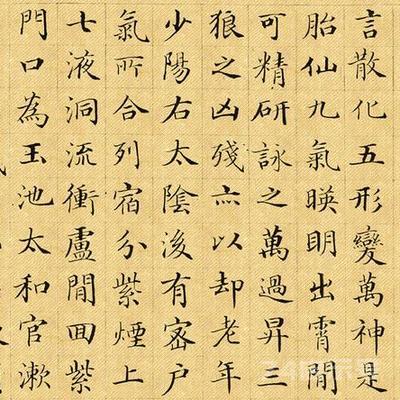 言散化五形變萬神是
胎仙九氣暎眀出霄閒
可精研詠之萬過昇三
狼之凶殘亦以却老年
少陽右太陰後有宻戶
氣所合列宿分紫煙上
七液洞流衝盧閒回紫
門口為玉池太和官漱